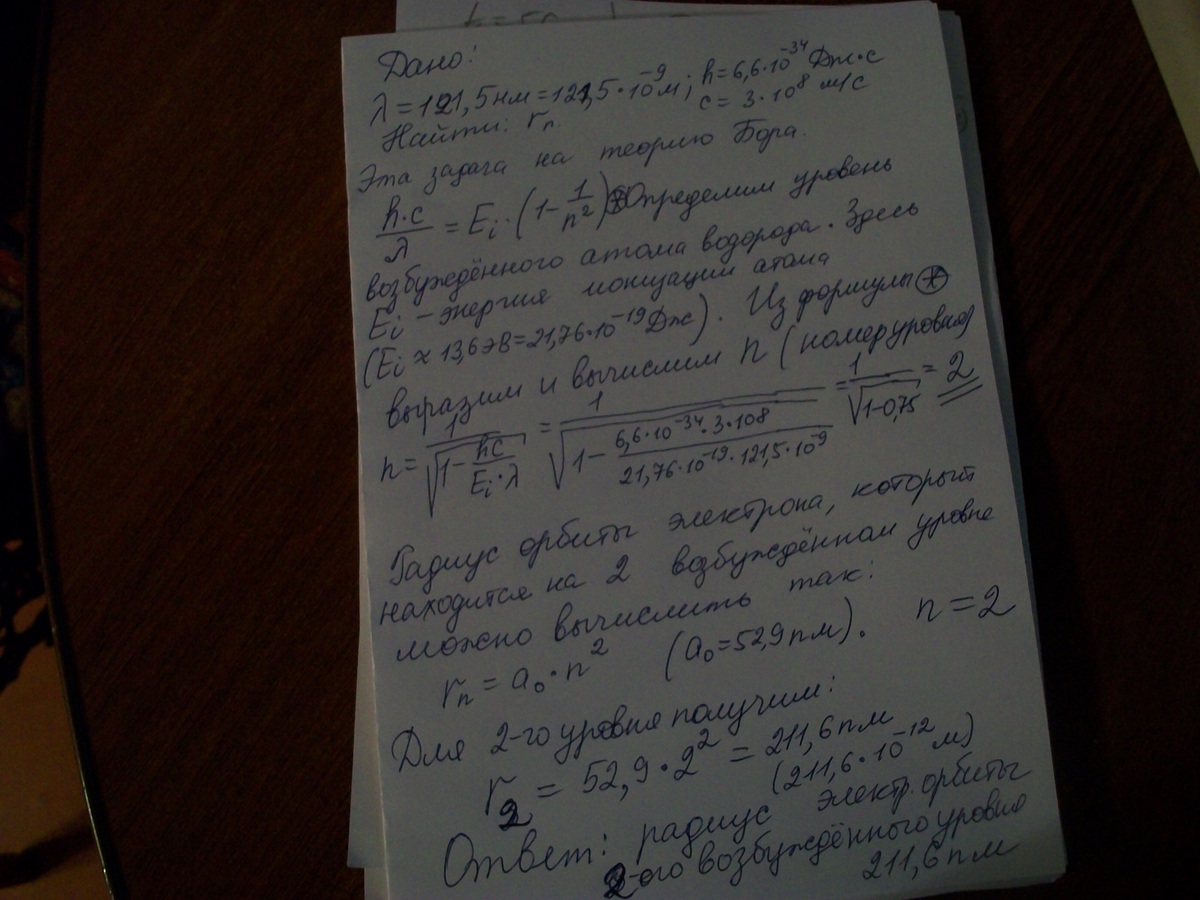 Дано:
λ=121,5нм=121,5·10⁻⁹м; h=6,6·10⁻³⁴ Дж·с
c = 3·10⁸ м/с
Найти: rₙ
Эта задача на теорию Бора.
h·c/λ = Eᵢ·(1-1/n²)⊛ Определим уровень
возбуждённого атома водорода. Здесь
Eᵢ - энергия ионизации атома
(Eᵢ ≈ 13,6эВ=21,76·10⁻¹⁹Дж). Из формулы ⊛
выразим и вычислим n (номер уровня)
n = 1/√(1-hc/(Eᵢ·λ)) = 1/√(1-(6,6·10⁻³⁴·3·10⁸)/(21,76·10⁻¹⁹·121,5·10⁻⁹)) = 1/√(1-0,75) = 2
Радиус орбиты электрона, который
находится на 2 возбуждённом уровне
можно вычислить так:
rₙ = a₀·n² (a₀=52,9 пм). n=2
Для 2-го уровня получим:
r₂ = 52,9·2² = 211,6 пм
(211,6·10⁻¹² м)
Ответ: радиус электр. орбиты
2-ого возбуждённого уровня
211,6 пм